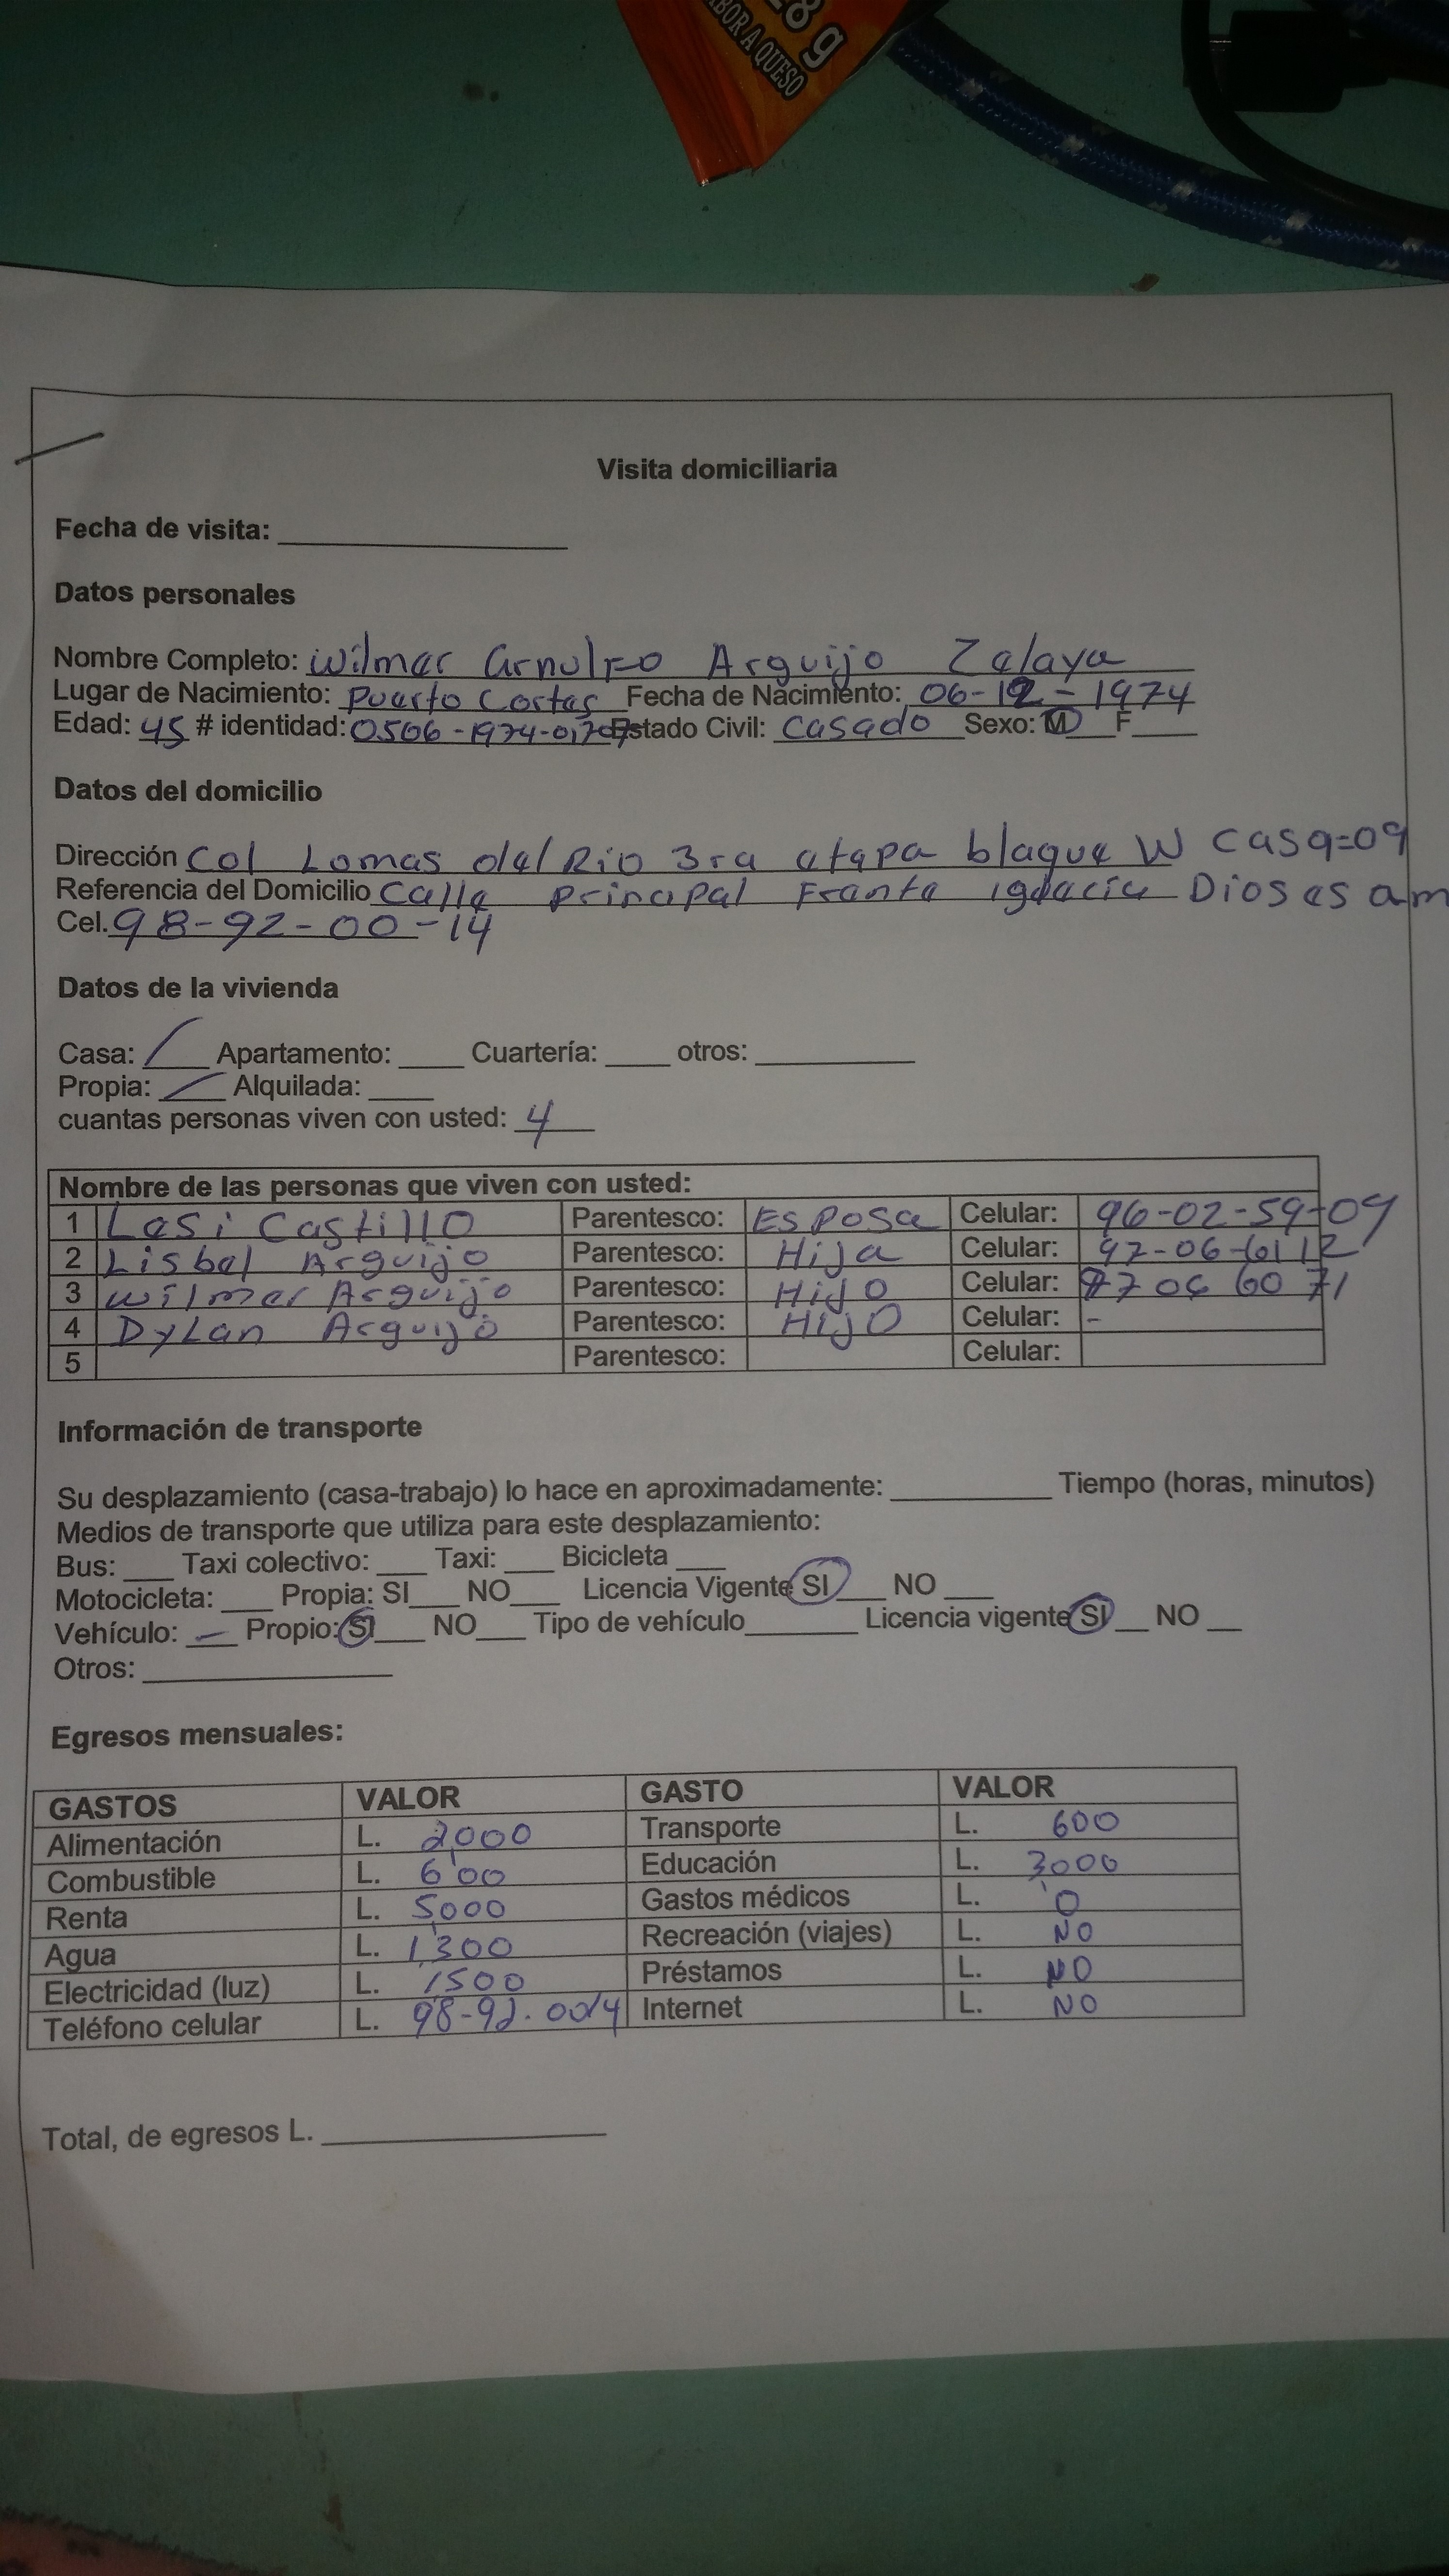 28 g
SABOR A QUESO
Visita domiciliaria
Fecha de visita:
Datos personales
Nombre Completo: Wilmer Arnulfo Arguijo Zelaya
Lugar de Nacimiento: Puerto Cortes Fecha de Nacimiento: 06-12-1974
Edad: 45 # identidad: 0506-1974-01707 Estado Civil: Casado Sexo: M F
Datos del domicilio
Dirección Col Lomas del Rio 3ra etapa bloque W Casa=09
Referencia del Domicilio Calle Principal Frente Dios es am
Cel. 98-92-00-14
Datos de la vivienda
Casa: / Apartamento: Cuartería: otros:
Propia: / Alquilada:
cuantas personas viven con usted: 4
Nombre de las personas que viven con usted:
1 Lesi Castillo Parentesco: Esposa Celular: 96-02-59-09
2 Lisbel Arguijo Parentesco: Hija Celular: 97-06-6112
3 Wilmer Arguijo Parentesco: Hijo Celular: 97 06 60 71
4 Dylan Arguijo Parentesco: Hijo Celular: -
5 Parentesco: Celular:
Información de transporte
Su desplazamiento (casa-trabajo) lo hace en aproximadamente: Tiempo (horas, minutos)
Medios de transporte que utiliza para este desplazamiento:
Bus: Taxi colectivo: Taxi: Bicicleta
Motocicleta: Propia: SI NO Licencia Vigente SI NO
Vehículo: Propio: SI NO Tipo de vehículo Licencia vigente SI NO
Otros:
Egresos mensuales:
GASTOS VALOR GASTO VALOR
Alimentación L. 2,000 Transporte L. 600
Combustible L. 600 Educación L. 3,000
Renta L. 5000 Gastos médicos L. 0
Agua L. 1,300 Recreación (viajes) L. NO
Electricidad (luz) L. 1500 Préstamos L. NO
Teléfono celular L. 98-92.0014 Internet L. NO
Total, de egresos L.